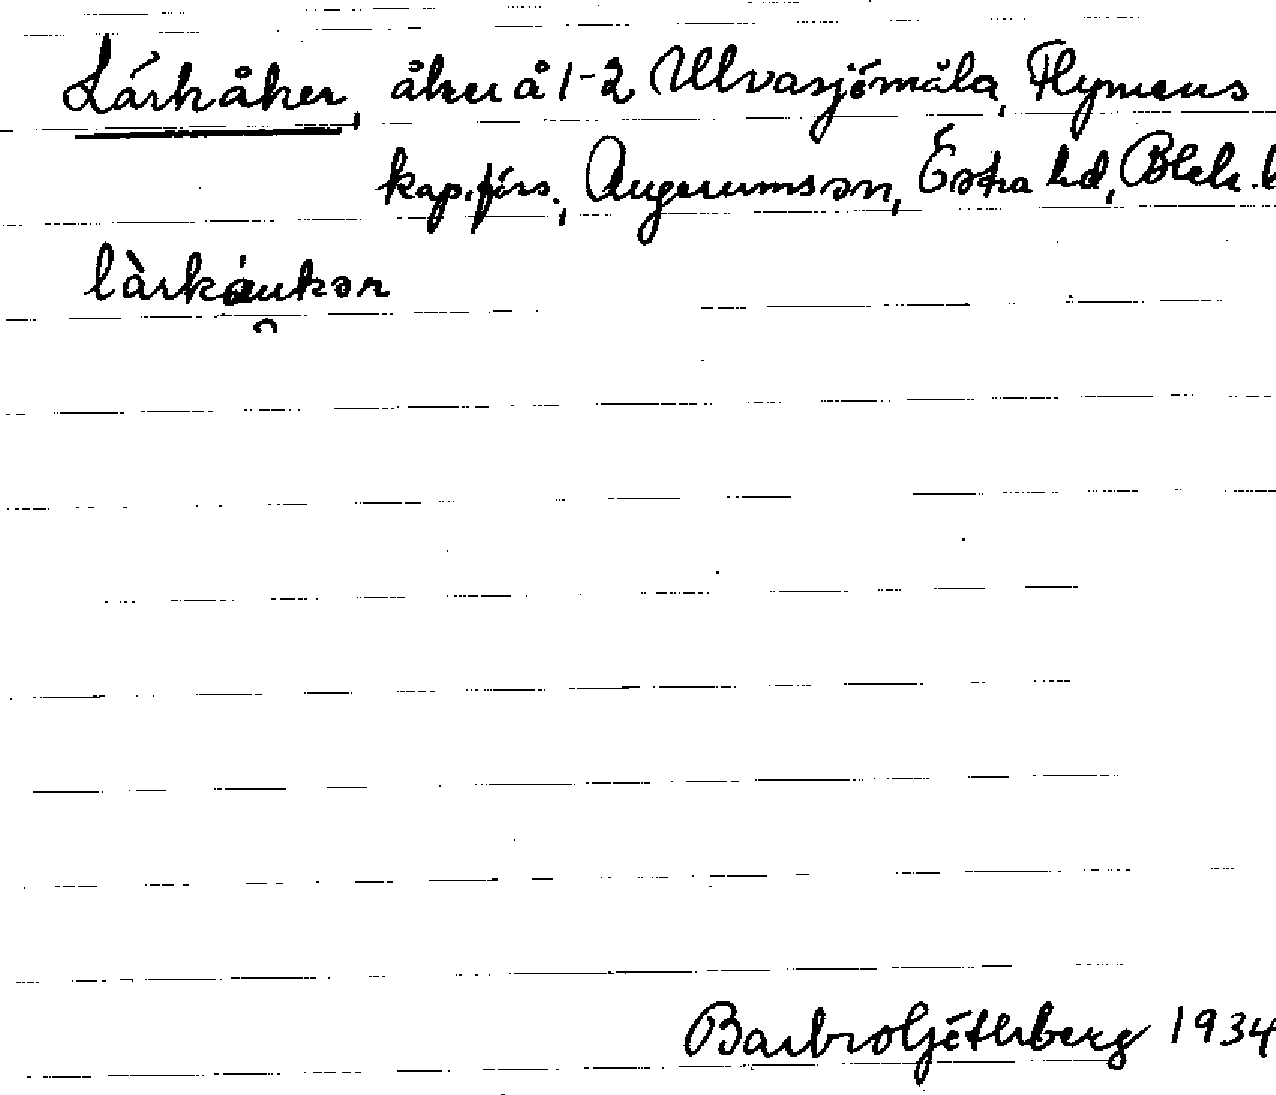 Lärkåker, åker å 1-2 Ulvasjömåla, Flymens
kap.förs., Augerums sn, Östra hd, Blek. l
làrkáukər
Barbro Götherberg 1934